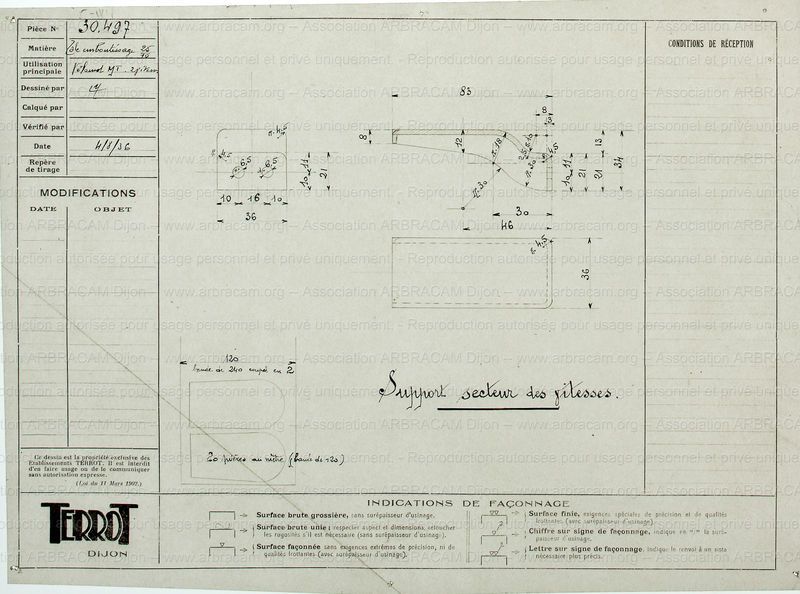 Pièce No 30.497
Matière Tôle emboutissage 25/10
Utilisation principale
Dessiné par
Calqué par
Vérifié par
Date 4/8/36
Repère de tirage
MODIFICATIONS
DATE OBJET
CONDITIONS DE RÉCEPTION
83
8
8
12
r. 18
13
34
10
11
21
21
r. 30
30
46
r. 4,5
6,5
6,5
10
11
21
10 16 10
36
r. 4,5
36
120
bande de 240 coupé en 2
20 pièces au mètre (bande de 120)
Support secteur des vitesses.
Ce dessin est la propriété exclusive des
Etablissements TERROT. Il est interdit
d'en faire usage ou de le communiquer
sans autorisation expresse.
(Loi du 11 Mars 1902.)
TERROT
DIJON
INDICATIONS DE FAÇONNAGE
Surface brute grossière, sans surépaisseur d'usinage.
Surface brute unie ; respecter aspect et dimensions, retoucher
les rugosités s'il est nécessaire (sans surépaisseur d'usinage).
Surface façonnée sans exigences extrêmes de précision, ni de
qualités frottantes (avec surépaisseur d'usinage).
Surface finie, exigences spéciales de précision et de qualités
frottantes (avec surépaisseur d'usinage).
Chiffre sur signe de façonnage, indique en m/m la surépaisseur d'usinage.
Lettre sur signe de façonnage, indique le renvoi à un nota
nécessaire plus précis.
www.arbracam.org - Association ARBRACAM Dijon - www.arbracam.org - Association ARBRACAM Dijon
Reproduction autorisée pour usage personnel et privé uniquement. - Reproduction autorisée pour usage personnel et privé uniquement.